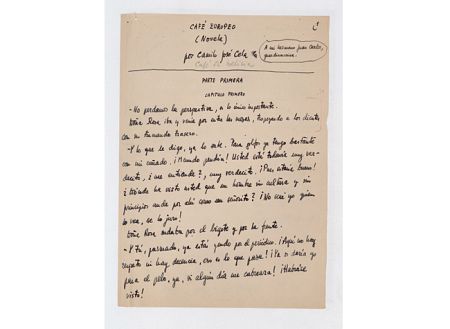 CAFÉ EUROPEO
(Novela)
A mi hermano Juan Carlos,
por Camilo José Cela
Café
PARTE PRIMERA
CAPITULO PRIMERO
- No perdamos la perspectiva, es lo único importante.
Doña Rosa iba y venía por entre las mesas, tropezando a los clientes
con su tremendo trasero.
- Y lo que le digo, ya lo sabe. Para golfos ya tengo bastante
con mi cuñado. ¡Menudo pendón! Usted está todavía muy ver-
decito, ¿me entiende?, muy verdecito. ¡Pues estaría bueno!
¿Dónde ha visto usted que un hombre sin cultura y sin
principios ande por ahí como un señorito? ¡No seré yo quien
lo vea, se lo juro!
Doña Rosa sudaba por el bigote y por la frente.
- Y tú, pasmado, ya estás yendo por el periódico. ¡Aquí no hay
respeto ni hay decencia, eso es lo que pasa! ¡Ya os daría yo
para el pelo, ya, si algún día me cabreara! ¡Habráse
visto!